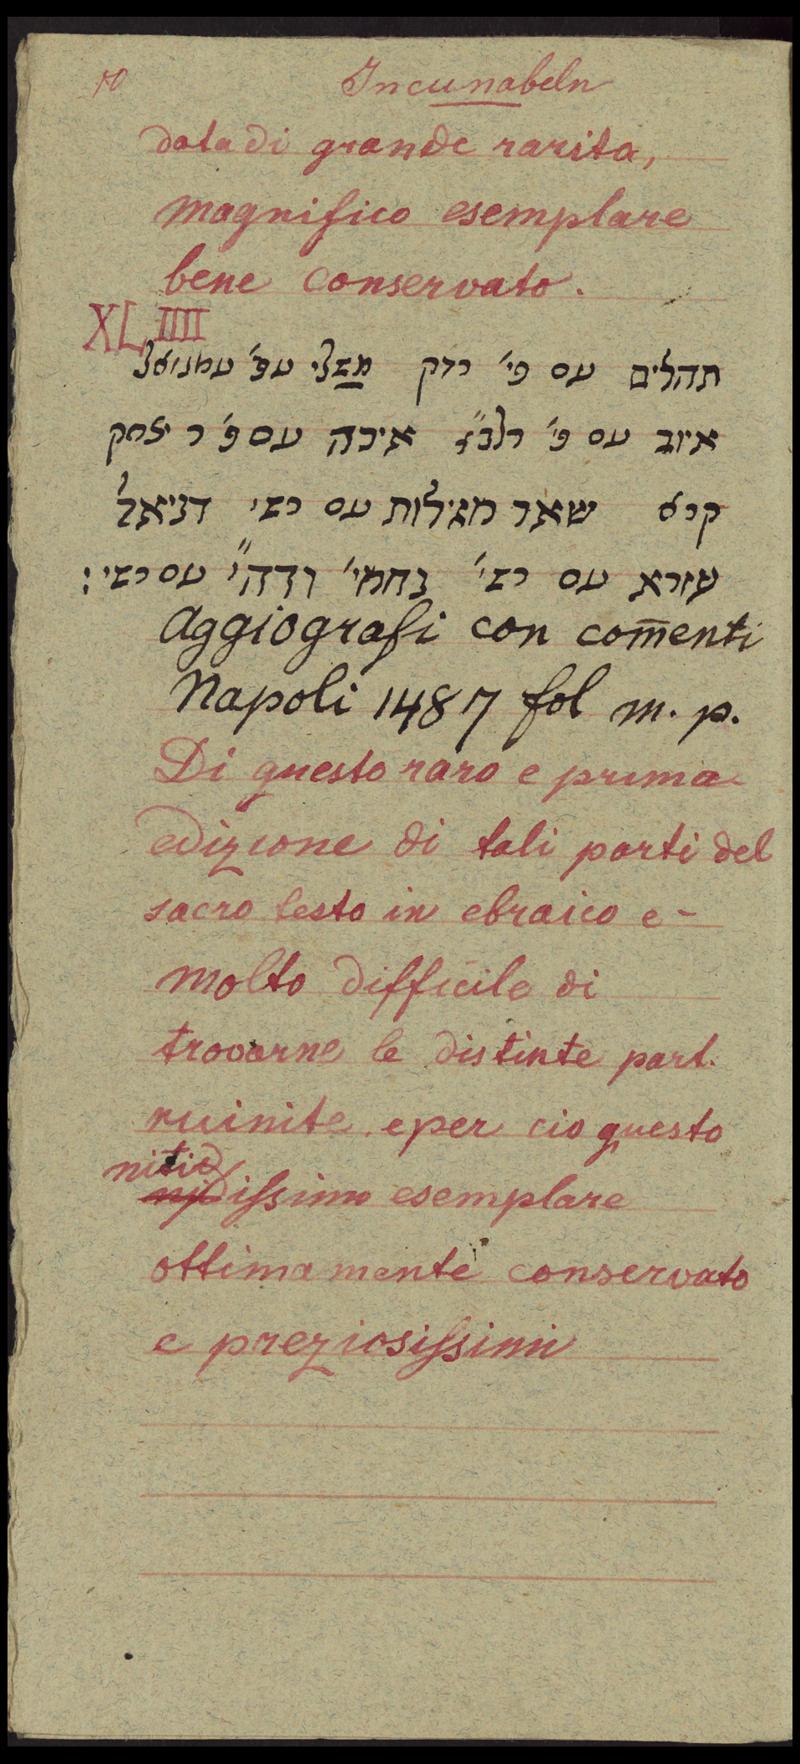 10 Incunabeln
data di grande rarita,
magnifico esemplare
bene conservato.
XLIIII
תהלים עם פי' רדק משלי עם פ' עמנואל
איוב עם פ' רלב"ג איכה עם פ' ר יוסף
קרא שאר מגילות עם רשי דניאל
עזרא עם רשי' נחמי' ודה"י עם רשי:
Aggiografi con com̄enti
Napoli 1487 fol m. p.
Di questo raro e prima
edizione di tali parti del
sacro testo in ebraico e-
molto difficile di
trovarne le distinte part.
ruinite e per cio questo
nitid
issimo esemplare
ottimamente conservato
e preziosissimi